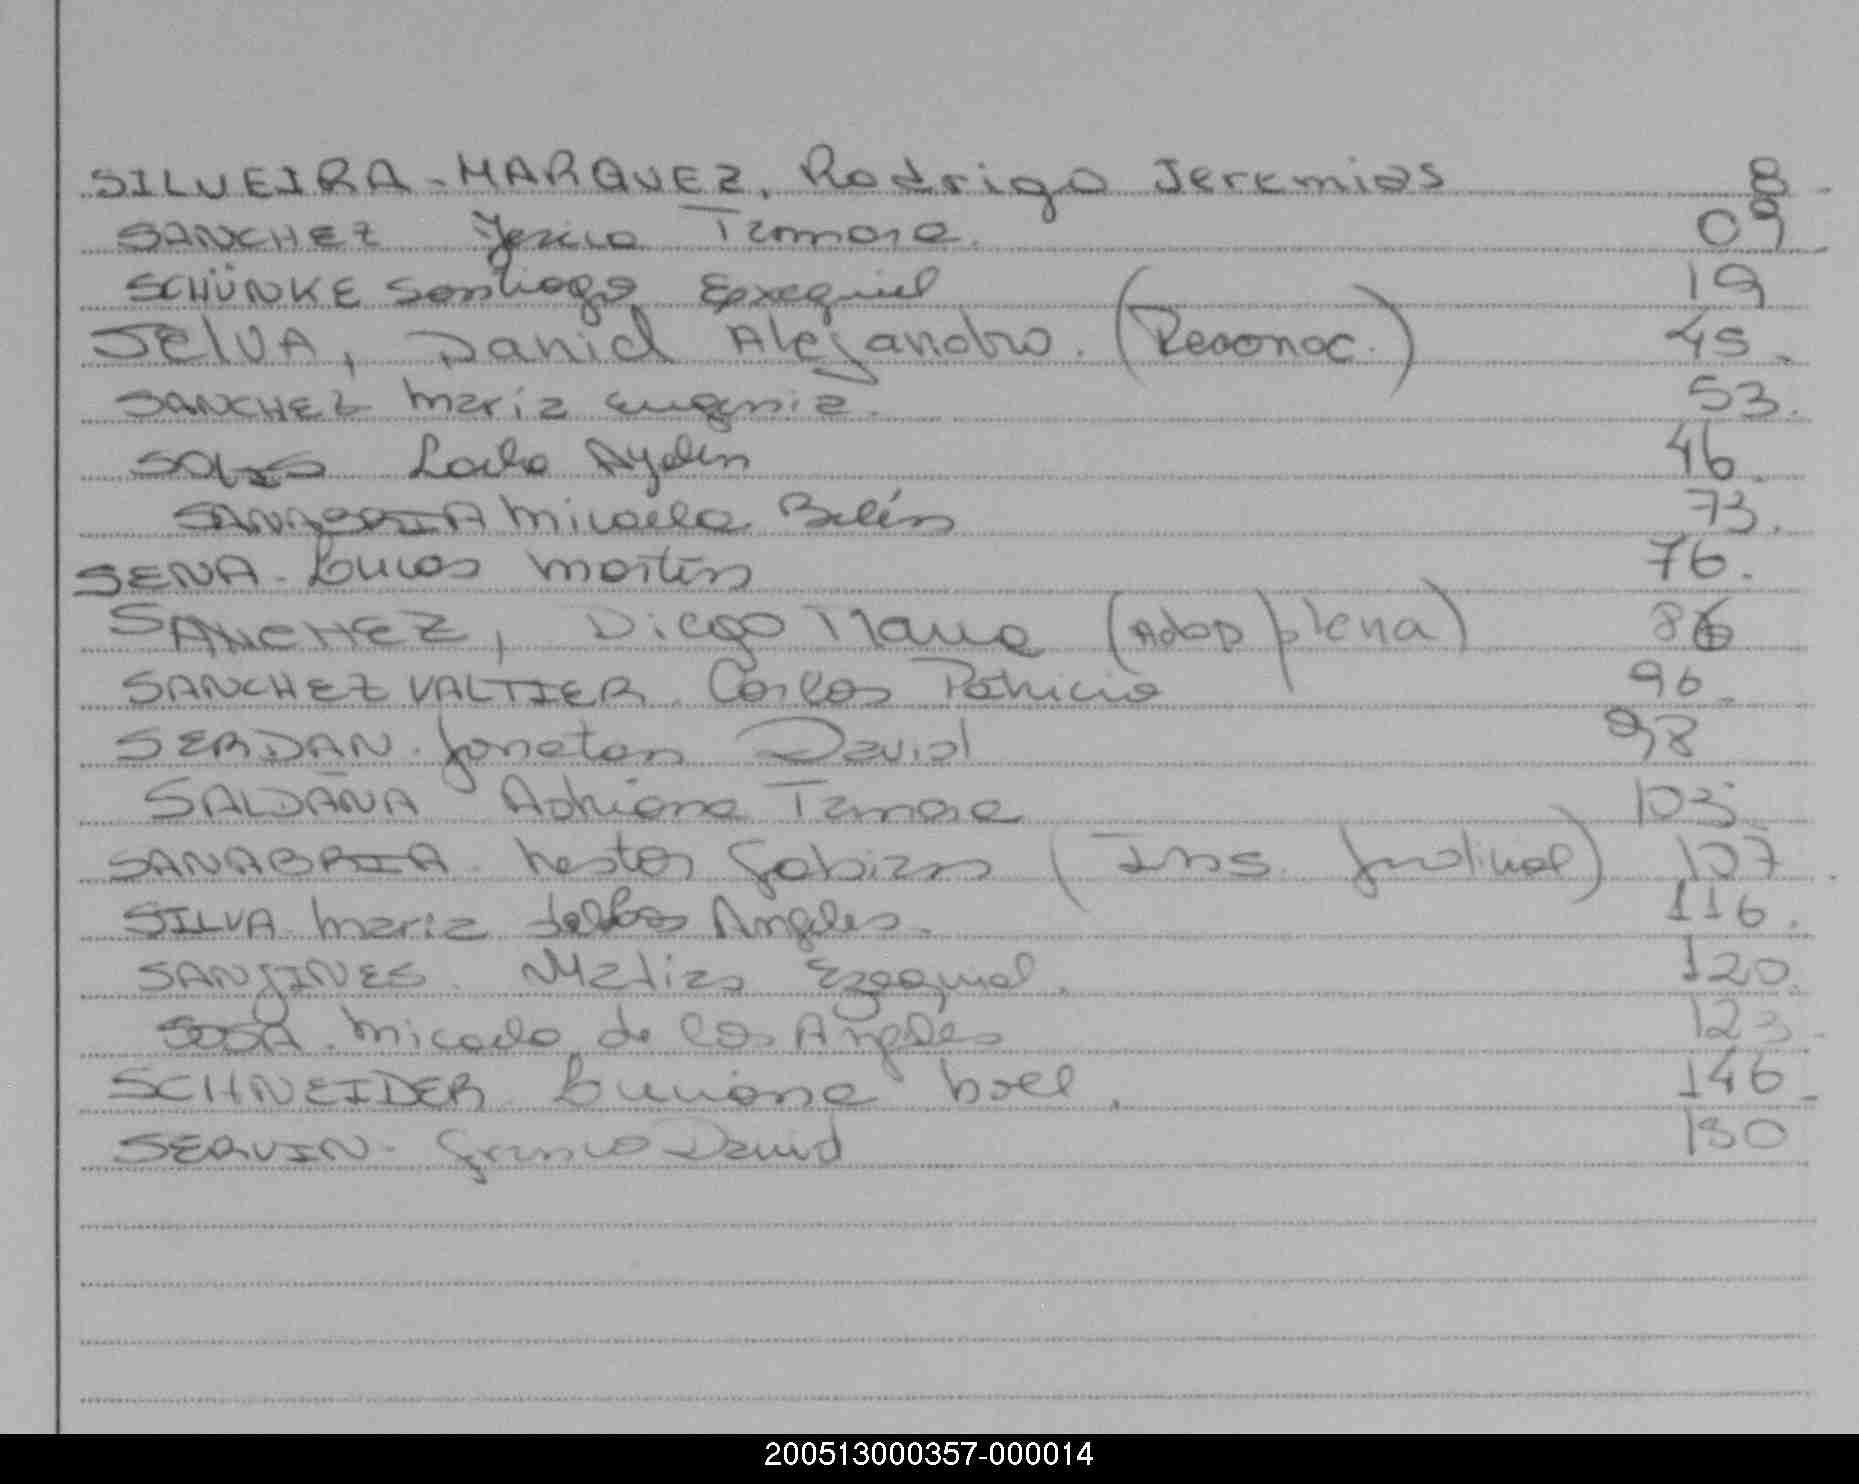 SILVEIRA-MARQUEZ, Rodrigo Jeremias 8
SANCHEZ Tamara 09
SCHÜNKE Santiago Exequiel 19
SELVA, Daniel Alejandro. (Reconoc.) 45
SANCHEZ Maria Eugenia. 53.
SOLIS Ayelen 46
SANABRIA Micaela Belén 73.
SENA - Lucas Martin 76.
SANCHEZ, Diego (Adop plena) 86
SANCHEZ VALTIER. Carlos Patricio 96
SERDAN. Jonatan David 98
SALDAÑA Adriana Tamara 103
SANABRIA. Nestor Fabian (Ins. Judicial) 107
SILVA Maria de los Angeles. 116.
SANJINES. Matias Ezequiel. 120.
SOSA. Micaela de los Angeles 123
SCHNEIDER Luciana 146
SERVIN. Franco David
200513000357-000014